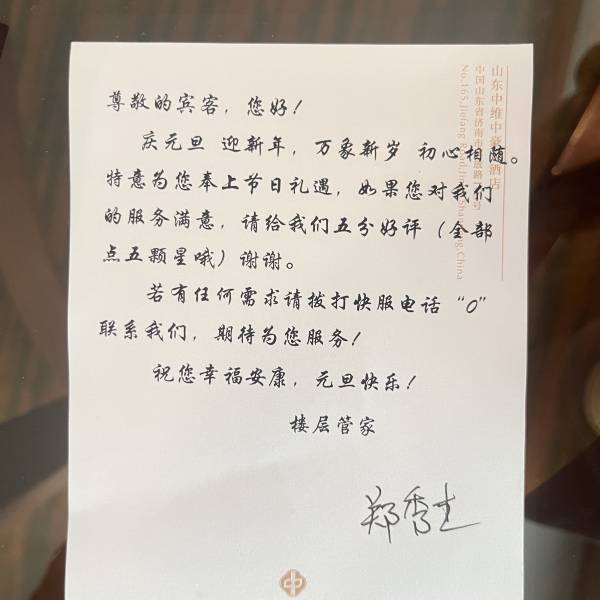 尊敬的宾客，您好！
庆元旦 迎新年，万象新岁 初心相随。
特意为您奉上节日礼遇，如果您对我们
的服务满意，请给我们五分好评（全部
点五颗星哦）谢谢。
若有任何需求请拨打快服电话“0”
联系我们，期待为您服务！
祝您幸福安康，元旦快乐！
楼层管家
郑秀生
山东中维中豪酒店
中国山东省济南市
No.165,Jiefang Road,Jinan,Shandong,China
中